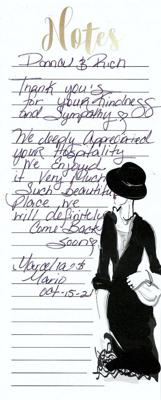 Notes
Donna & Rich
Thank you's
for your kindness
and Sympathy
We deeply Appreciated
your Hospitality
We Enjoyed
it Very Much
Such beautiful
Place we
will definitely
Come Back
Soon
Mario
Oct-15-2